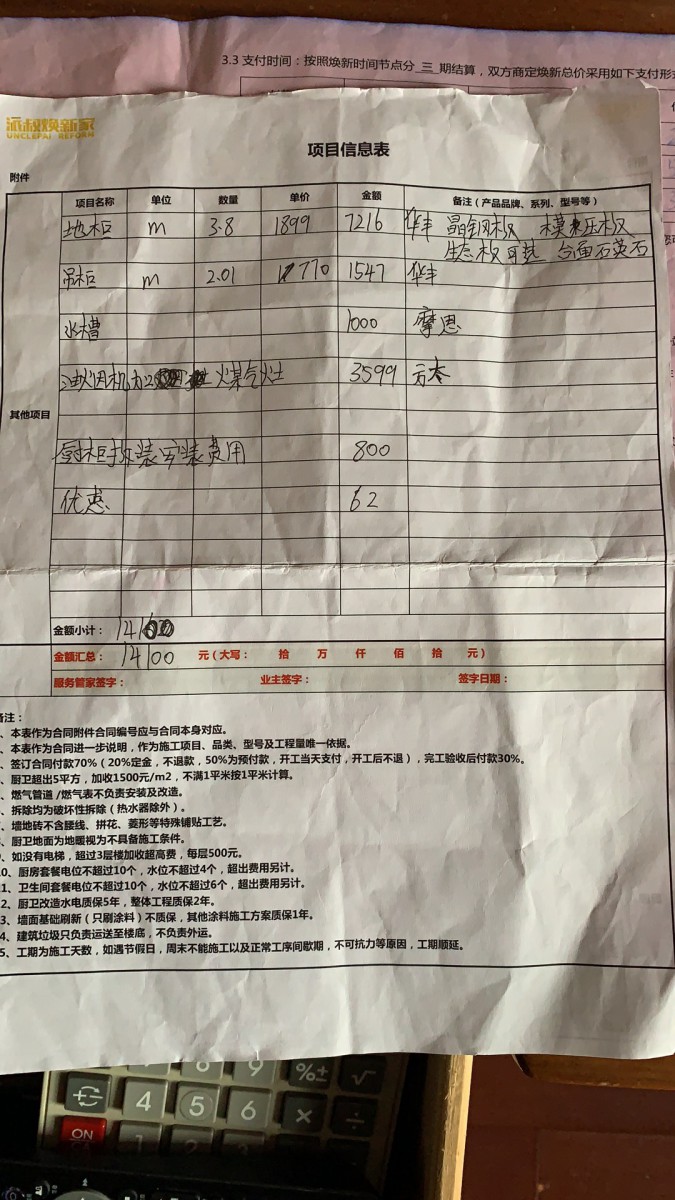 3.3 支付时间：按照焕新时间节点分_三_期结算，双方商定焕新总价采用如下支付形式
派叔焕新家
UNCLEPAI REFORM
项目信息表
附件
项目名称 单位 数量 单价 金额 备注（产品品牌、系列、型号等）
地柜 m 3.8 1899 7216 华丰 晶钢板 模压板
生态板可选 台面石英石
吊柜 m 2.01 770 1547 华丰
水槽 1000 摩恩
油烟机 煤气灶 3599 方太
其他项目
厨柜拆装安装费用 800
优惠 62
金额小计： 14100
金额汇总： 14100 元（大写： 拾 万 仟 佰 拾 元）
服务管家签字： 业主签字： 签字日期：
备注：
、本表作为合同附件合同编号应与合同本身对应。
、本表作为合同进一步说明，作为施工项目、品类、型号及工程量唯一依据。
、签订合同付款70%（20%定金，不退款，50%为预付款，开工当天支付，开工后不退），完工验收后付款30%。
、厨卫超出5平方，加收1500元/m2，不满1平米按1平米计算。
、燃气管道 /燃气表不负责安装及改造。
、拆除均为破坏性拆除（热水器除外）。
、墙地砖不含腰线、拼花、菱形等特殊铺贴工艺。
、厨卫地面为地暖视为不具备施工条件。
、如没有电梯，超过3层楼加收超高费，每层500元。
0、厨房套餐电位不超过10个，水位不超过4个，超出费用另计。
1、卫生间套餐电位不超过10个，水位不超过6个，超出费用另计。
2、厨卫改造水电质保5年，整体工程质保2年。
3、墙面基础刷新（只刷涂料）不质保，其他涂料施工方案质保1年。
4、建筑垃圾只负责运送至楼底，不负责外运。
5、工期为施工天数，如遇节假日，周末不能施工以及正常工序间歇期，不可抗力等原因，工期顺延。
8 9 %± √
4 5 6 × ÷
ON